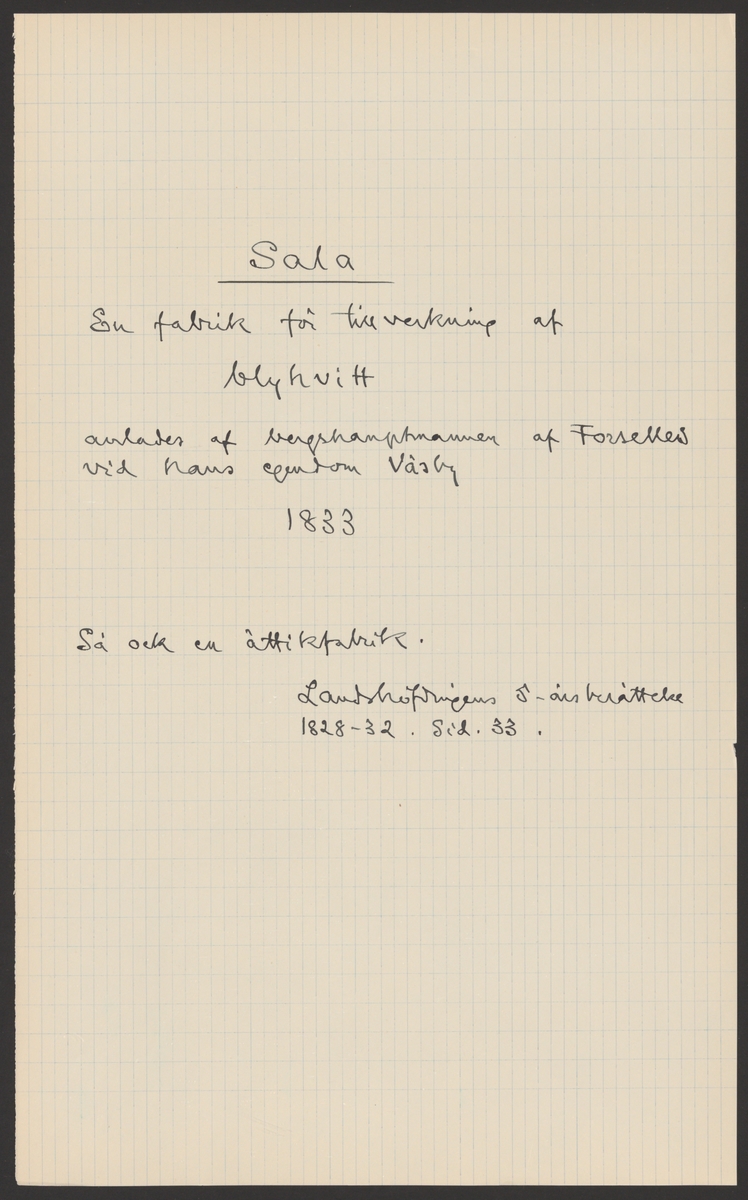 Sala
En fabrik för tillverkning af
blyhvitt
anlades af bergshauptmannen af Forselles
vid hans egendom Väsby
1833
Så ock en ättikfabrik.
Landshöfdingens 5-årsberättelse
1828-32. Sid. 33.